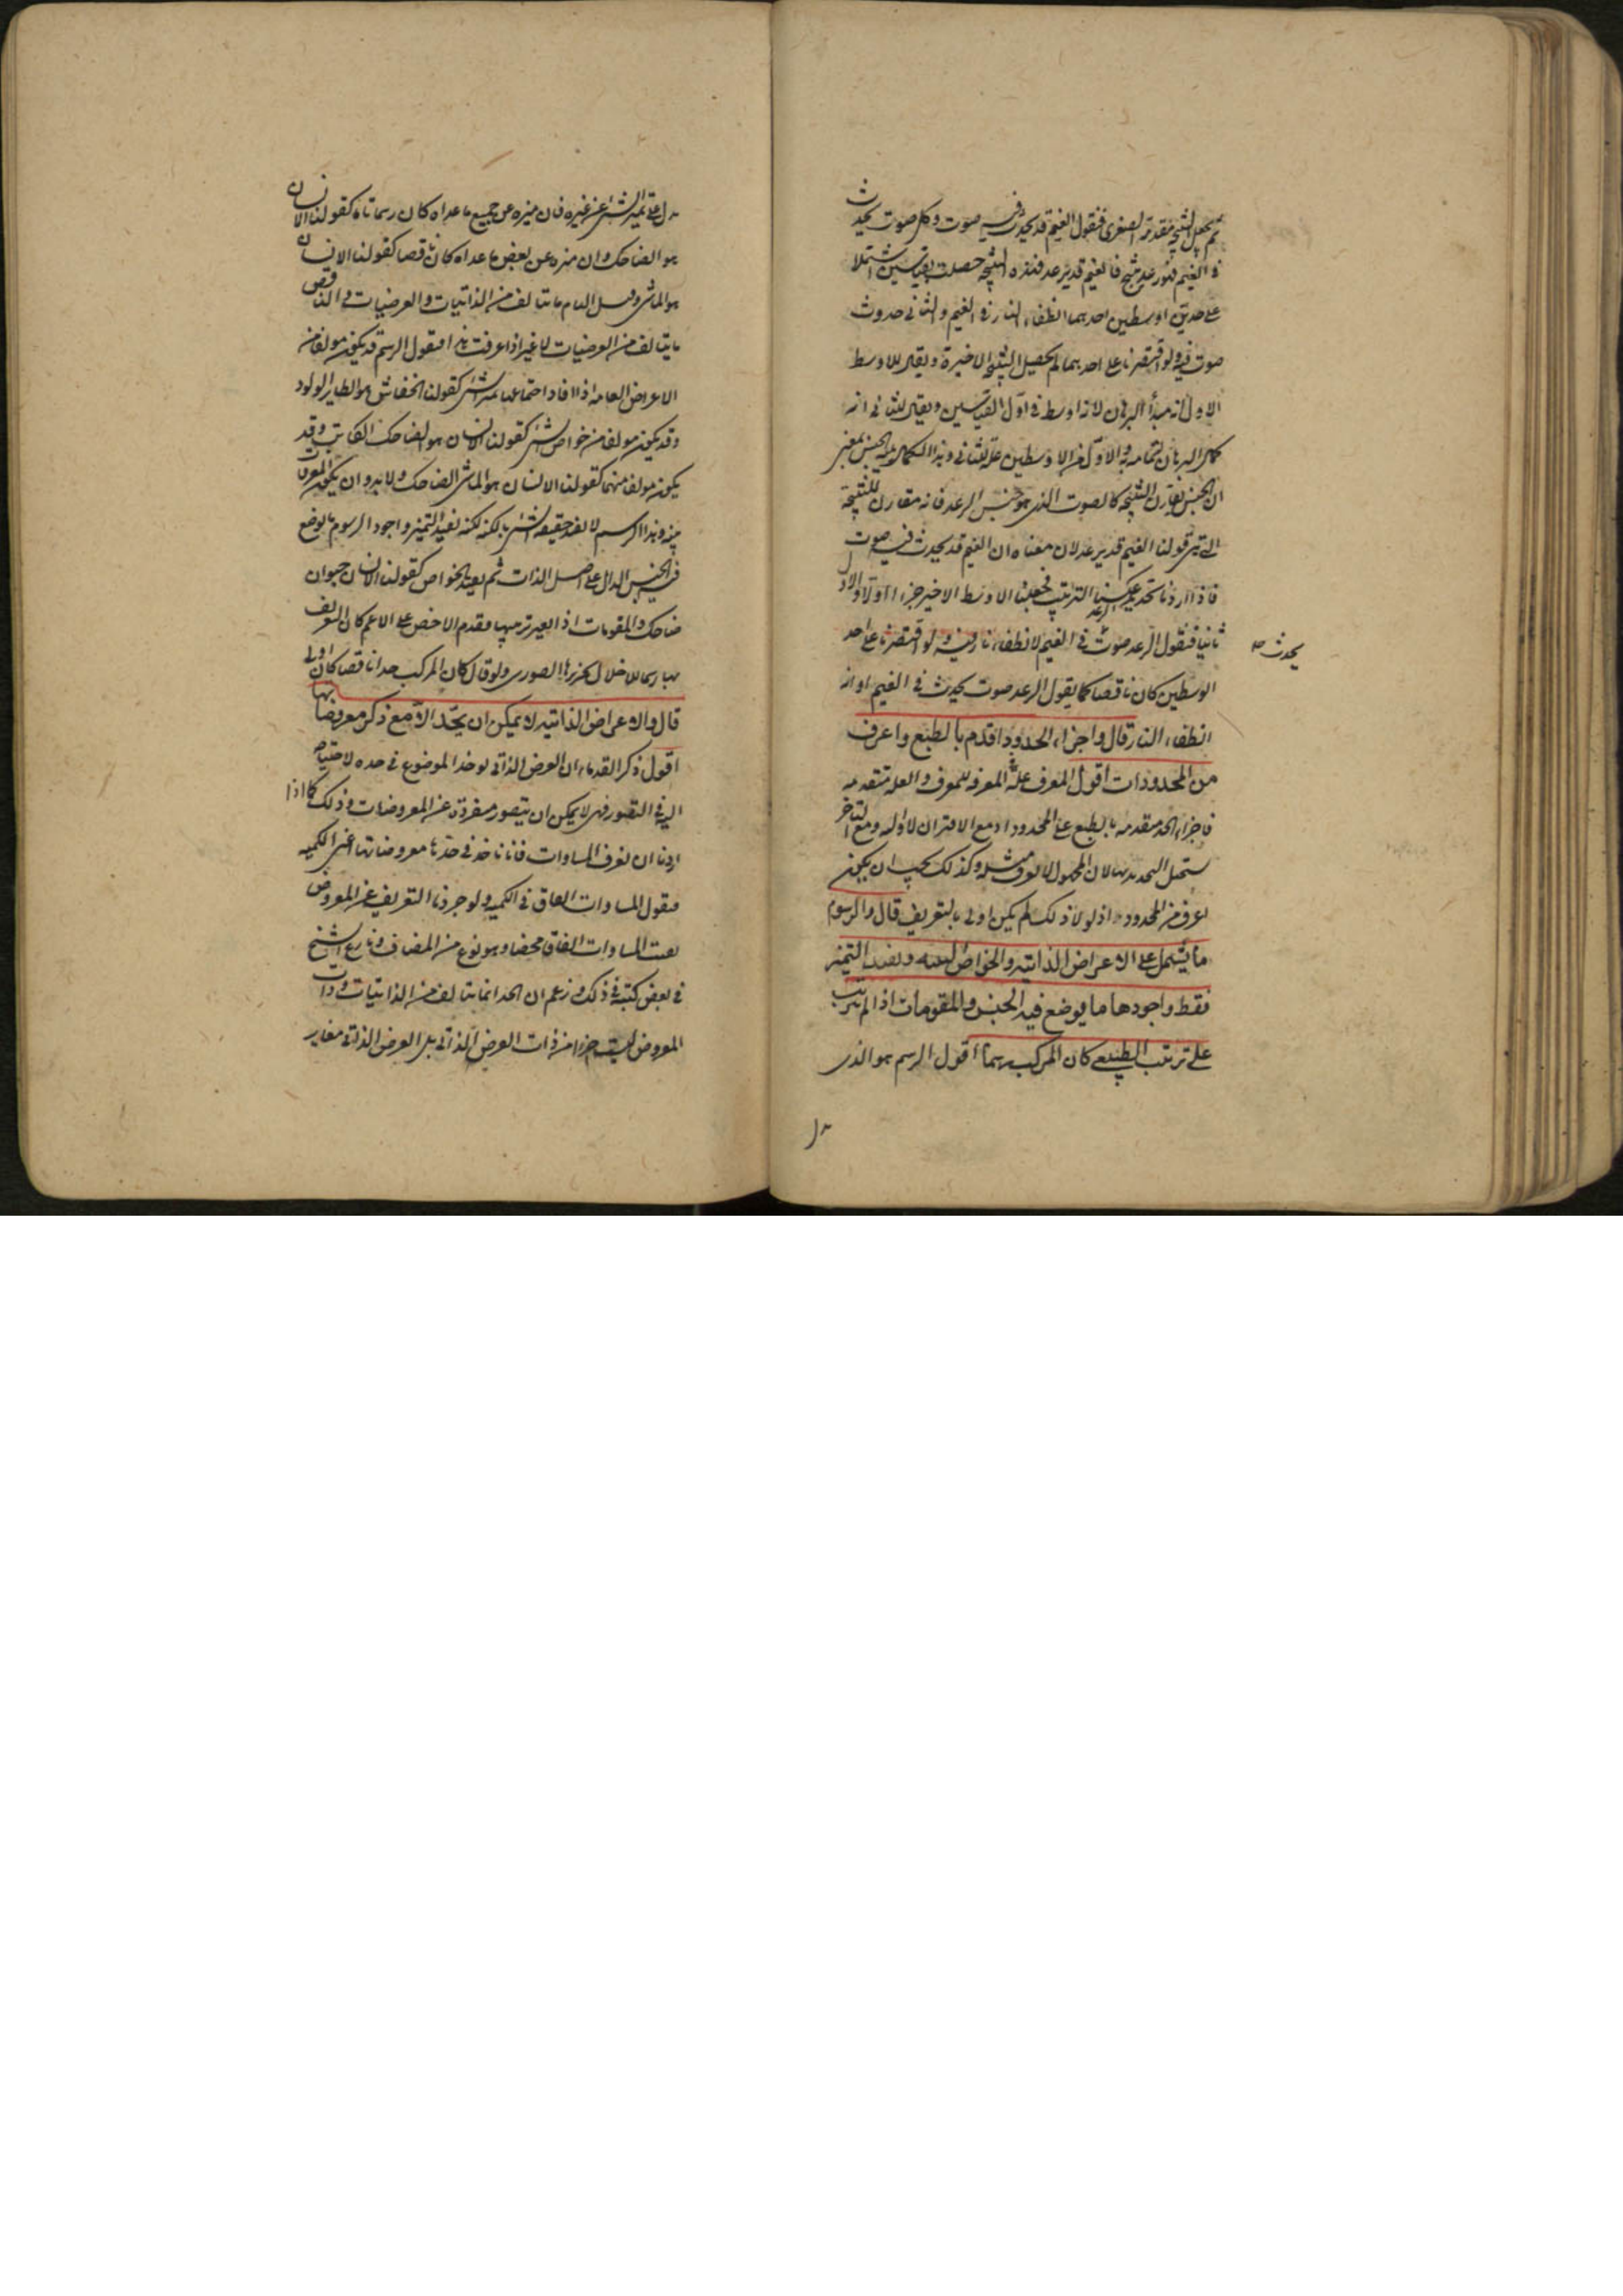 ثم يجعل النتيجة مقدمة الصغرى فنقول الغيم قد يحدث فيه صوت وكل صوت يحدث
في الغيم فهو رعد ينتج فالغيم قد يرعد فهذه النتيجة حصلت بقياسين اشتملا
على حدين اوسطين احدهما انطفاء النار في الغيم والثاني حدوث
صوت فيه ولو اقتصرنا على احدهما لم تحصل النتيجة الاخيرة ويقال للاوسط
الاول انه مبدأ البرهان لانه اوسط في اول القياسين ويقال للثاني انه
كمال البرهان لتمامه به والاول من الاوسطين علة للثاني وهذا الكمال الجنس بمعنى
ان الجنس يقارن النتيجة كالصوت الذي هو جنس الرعد فانه مقارن للنتيجة
التي هي قولنا الغيم قد يرعد لان معناه ان الغيم قد يحدث فيه صوت
فاذا اردنا تحديد الرعد عكسنا الترتيب فجعلنا الاوسط الاخير جزءا اولا والاول
ثانيا فنقول الرعد صوت في الغيم لانطفاء نار فيه ولو اقتصرنا على احد
يحدث صح
الوسطين كان ناقصا كما يقول الرعد صوت يحدث في الغيم او انه
انطفاء النار قال واجزاء الحدود اقدم بالطبع واعرف
من المحدودات اقول المعرف علة المعرفة للمعرف والعلة متقدمة
فاجزاء الحد متقدمة بالطبع على المحدود اذ مع الاقتران لا اولية ومع التاخر
يستحيل التحديد بها لان المجهول لا يعرف مثله وكذلك يجب ان يكون
اعرف من المحدود اذ لولا ذلك لم يكن اولى بالتعريف قال والرسوم
ما يشتمل على الاعراض الذاتية والخواص البينة ويفيد التميز
فقط واجودها ما يوضع فيه الجنس والمقومات اذا لم يترتب
على ترتيب الطبيعي كان المركب رسما اقول الرسم هو الذي
دل
دل على تميز الشئ عن غيره فان ميزه عن جميع ما عداه كان رسما تاما كقولنا الانسان
هو الضاحك وان ميزه عن بعض ما عداه كان ناقصا كقولنا الانسان
هو الماشي وقيل التام ما يتالف من الذاتيات والعرضيات والناقص
ما يتالف من العرضيات لا غير اذا عرفت هذا فنقول الرسم قد يكون مولفا من
الاعراض العامة اذا افاد اجتماعها تميز الشئ كقولنا الخفاش هو الطاير الولود
وقد يكون مولفا من خواص الشئ كقولنا الانسان هو الضاحك الكاتب وقد
يكون مولفا منهما كقولنا الانسان هو الماشي الضاحك ولا بد وان يكون المعرف
بينة وهذا الرسم لا يفيد حقيقة الشئ بالكنه لكنه يفيد التميز واجود الرسوم ما يوضع
فيه الجنس الدال على اصل الذات ثم يقيد بالخواص كقولنا الانسان حيوان
ضاحك والمقومات اذا لغير ترتيبها فقدم الاخص على الاعم كان التعريف
بها رسما للاخلال بجزئها الصوري ولو قال كان المركب حدا ناقصا كان اولى
قال والاعراض الذاتية لا يمكن ان يحد الا مع ذكر معروضاتها
اقول ذكر القدماء ان العرض الذاتي يوخذ الموضوع في حده لاحتياجه
اليه في التصور فهي لا يمكن ان يتصور مفردة عن المعروضات وذلك كما اذا
اردنا ان نعرف المساوات فانا ناخذ في حدها معروضاتها اعني الكمية
فنقول المساوات اتفاق في الكمية ولو جردنا التعريف عن المعروض
بقيت المساوات اتفاقا محضا وهو نوع من المضاف ونازع الشيخ
في بعض كتبه في ذلك وزعم ان الحد انما يتالف من الذاتيات وذات
المعروض ليست جزءا من ذات العرض الذاتي بل العرض الذاتي مغاير